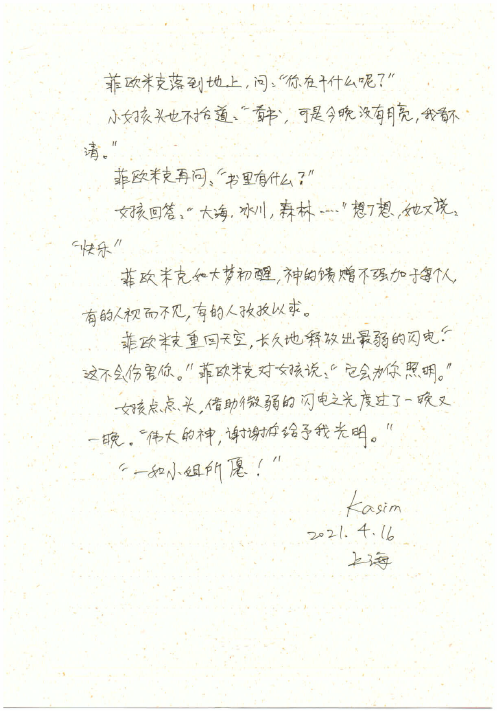 菲欧米克落到地上，问："你在干什么呢？"
小女孩头也不抬道："看书，可是今晚没有月亮，我看不
清。"
菲欧米克再问："书里有什么？"
女孩回答："大海，冰川，森林……"想了想，她又说：
"快乐"
菲欧米克如大梦初醒，神的馈赠不强加于每个人，
有的人视而不见，有的人孜孜以求。
菲欧米克重回天空，长久地释放出最弱的闪电："
这不会伤害你。"菲欧米克对女孩说："它会为你照明。"
女孩点点头，借助微弱的闪电之光度过了一晚又
一晚。"伟大的神，谢谢你给予我光明。"
"一如小姐所愿！"
Kasim
2021.4.16
上海